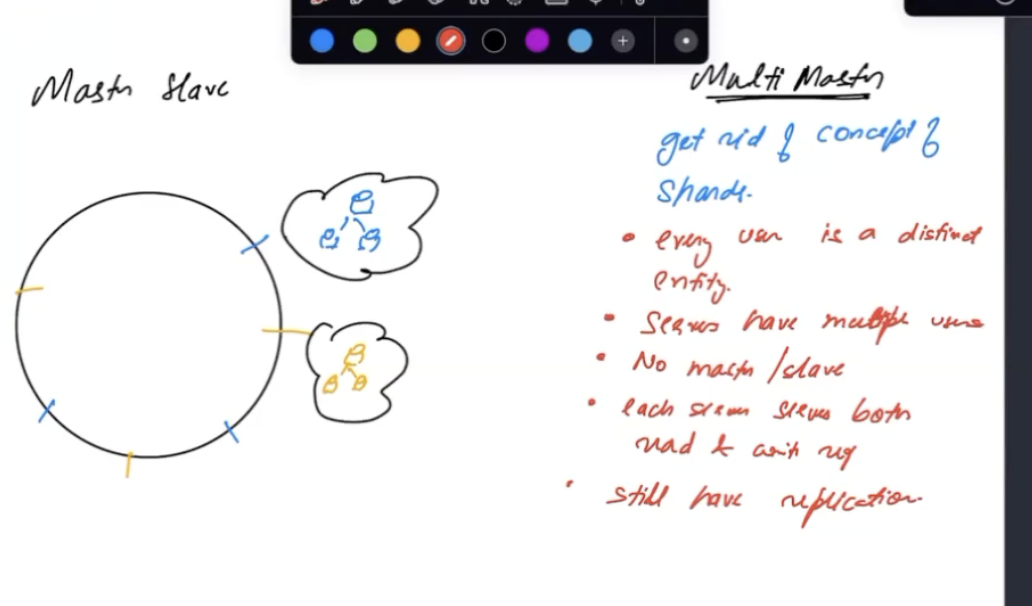 Master Slave
Multi Master
get rid of concept of
Shards.
• every user is a distinct
entity.
• Servers have multiple users
• No master/slave
• each server serves both
read & write req
• still have replication.